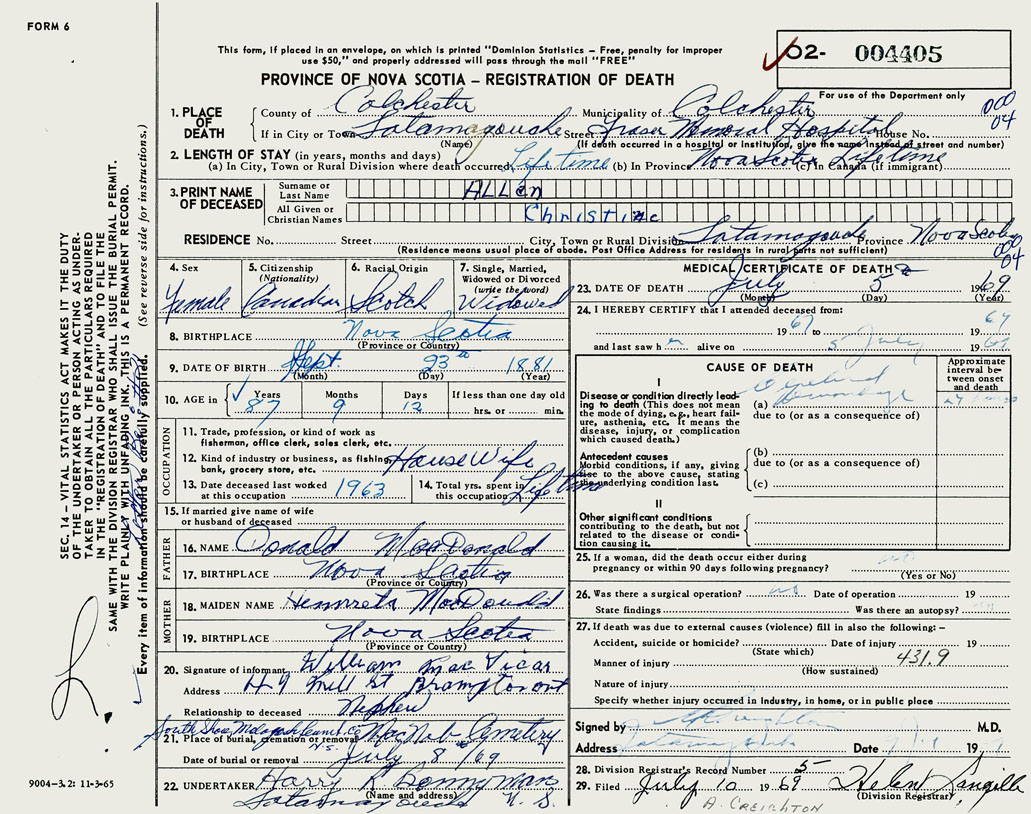 FORM 6
This form, if placed in an envelope, on which is printed "Dominion Statistics – Free, penalty for improper
use $50," and properly addressed will pass through the mail "FREE"
PROVINCE OF NOVA SCOTIA – REGISTRATION OF DEATH
02- 004405
For use of the Department only
000
04
1. PLACE OF DEATH
County of Colchester Municipality of Colchester
If in City or Town Tatamagouche Street Fraser Memorial Hospital House No.
(Name) (If death occurred in a hospital or institution, give the name instead of street and number)
2. LENGTH OF STAY (in years, months and days)
(a) In City, Town or Rural Division where death occurred Lifetime (b) In Province Nova Scotia (c) In Canada (if immigrant) Lifetime
3. PRINT NAME OF DECEASED
Surname or Last Name ALLen
All Given or Christian Names Christine
RESIDENCE No. Street City, Town or Rural Division Tatamagouche Province Nova Scotia
(Residence means usual place of abode. Post Office Address for residents in rural parts not sufficient)
000
04
4. Sex Female
5. Citizenship (Nationality) Canadian
6. Racial Origin Scotch
7. Single, Married, Widowed or Divorced (write the word) Widowed
8. BIRTHPLACE Nova Scotia
(Province or Country)
9. DATE OF BIRTH Sept. 23 1881
(Month) (Day) (Year)
10. AGE in Years 87 Months 9 Days 12 If less than one day old
hrs. or min.
OCCUPATION
11. Trade, profession, or kind of work as
fisherman, office clerk, sales clerk, etc.
12. Kind of industry or business, as fishing,
bank, grocery store, etc. House Wife
13. Date deceased last worked
at this occupation 1963
14. Total yrs. spent in
this occupation Lifetime
15. If married give name of wife
or husband of deceased
FATHER
16. NAME Donald MacDonald
17. BIRTHPLACE Nova Scotia
(Province or Country)
MOTHER
18. MAIDEN NAME MacDonald
19. BIRTHPLACE Nova Scotia
(Province or Country)
20. Signature of informant William MacVicar
Address 49 Mill St Brampton ont
Relationship to deceased Nephew
South Shore
21. Place of burial, cremation or removal MacNab Cemetery
N.S.
Date of burial or removal July 8 /69
22. UNDERTAKER Harry
(Name and address)
Tatamagouche N.S.
MEDICAL CERTIFICATE OF DEATH
23. DATE OF DEATH July 5 1969
(Month) (Day) (Year)
24. I HEREBY CERTIFY that I attended deceased from:
19 67 to 19
and last saw h er alive on 5 July 19
CAUSE OF DEATH
Approximate interval between onset and death
I
Disease or condition directly leading to death (This does not mean the mode of dying, e.g., heart failure, asthenia, etc. It means the disease, injury, or complication which caused death.)
(a) Cerebral
due to (or as a consequence of)
Antecedent causes
Morbid conditions, if any, giving rise to the above cause, stating the underlying condition last.
(b)
due to (or as a consequence of)
(c)
II
Other significant conditions
contributing to the death, but not related to the disease or condition causing it.
25. If a woman, did the death occur either during
pregnancy or within 90 days following pregnancy? no
(Yes or No)
26. Was there a surgical operation? no Date of operation 19
State findings Was there an autopsy?
27. If death was due to external causes (violence) fill in also the following: –
Accident, suicide or homicide? Date of injury 19
(State which)
Manner of injury 431.9
(How sustained)
Nature of injury
Specify whether injury occurred in industry, in home, or in public place
Signed by M.D.
Address Tatamagouche Date 19
28. Division Registrar's Record Number 5
29. Filed July 10 1969 Helen Langille
(Division Registrar)
A. CREIGHTON
SEC. 14 – VITAL STATISTICS ACT MAKES IT THE DUTY
OF THE UNDERTAKER OR PERSON ACTING AS UNDER-
TAKER TO OBTAIN ALL THE PARTICULARS REQUIRED
IN THE "REGISTRATION OF DEATH" AND TO FILE THE
SAME WITH THE DIVISION REGISTRAR WHO SHALL ISSUE THE BURIAL PERMIT.
WRITE PLAINLY WITH UNFADING INK. THIS IS A PERMANENT RECORD.
Every item of information should be carefully supplied. (See reverse side for instructions.)
9004-3.2: 11-3-65